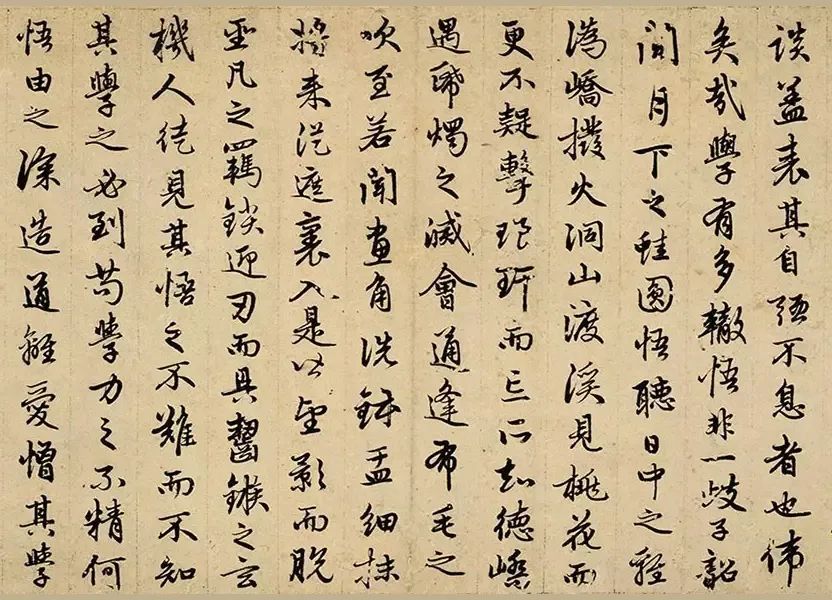 談盖表其自強不息者也偉
矣哉學有多轍悟非一歧子韶
聞月下之蛙圓悟聽日中之雞
溈嶠撥火洞山渡溪見桃花而
更不疑擊琅玕而忘所知德嶠
遇帋燭之滅會通逢布毛之
吹至若聞畫角洗鉢盂細抹
將来從遮裏入是皆望影而脫
堊凡之羈鎖迎刃而具齧鏃之玄
機人徒見其悟之不難而不知
其學之必到苟學力之不精何
悟由之深造道離愛憎其學